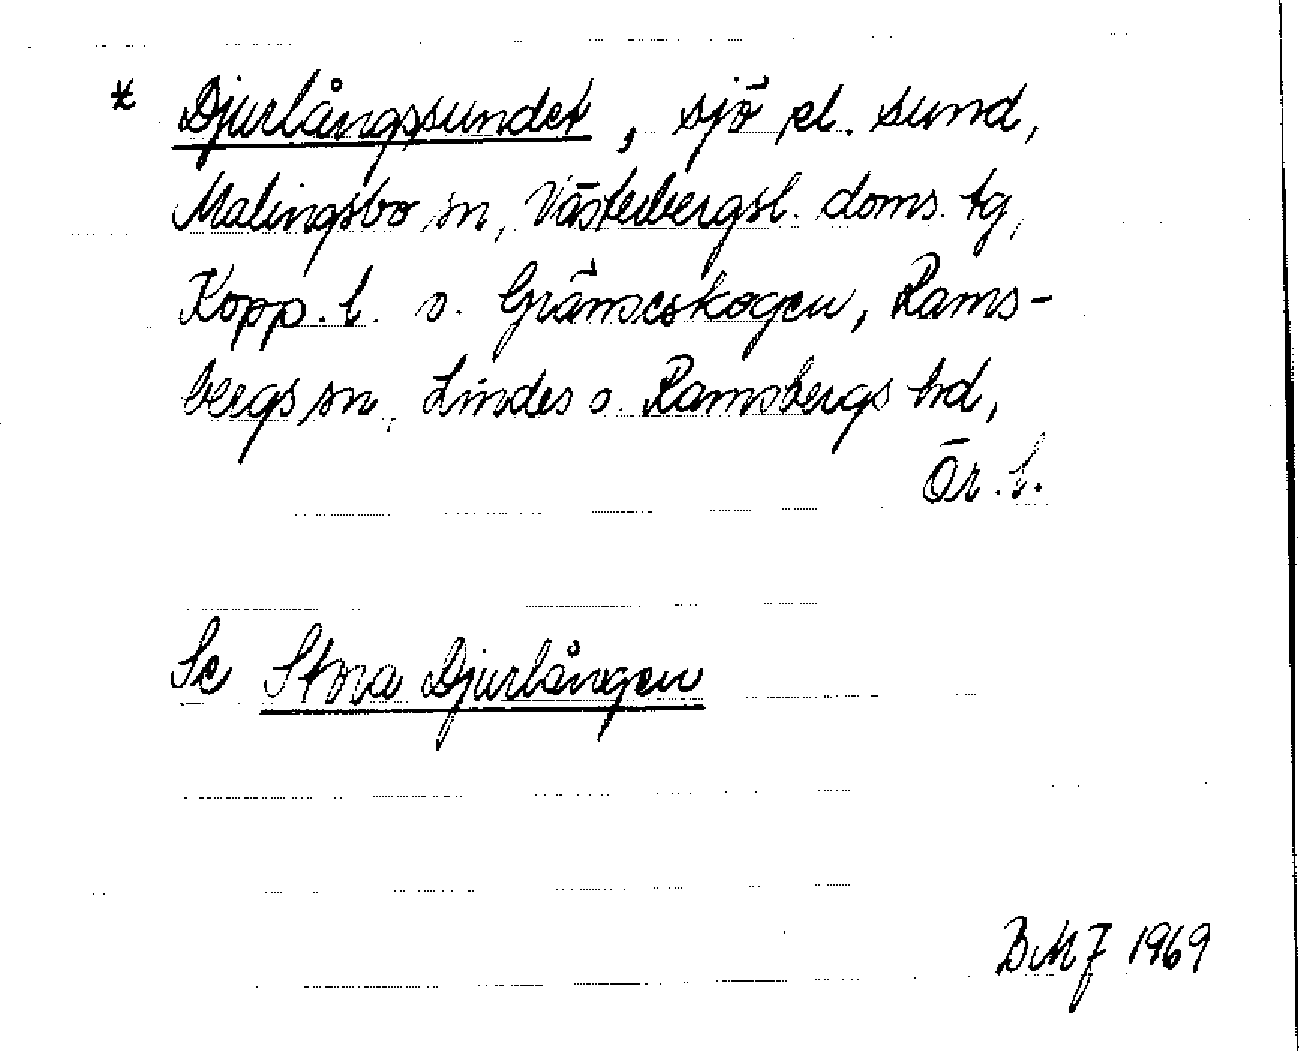 * Djurlångssundet, sjö el. sund,
Malingsbo sn, Västerbergsl. doms. tg,
Kopp. l. o. Grämsskogen, Rams-
bergs sn, Lindes o. Ramsbergs hd,
Ör. l.
Se Stora Djurlången
BMJ 1969